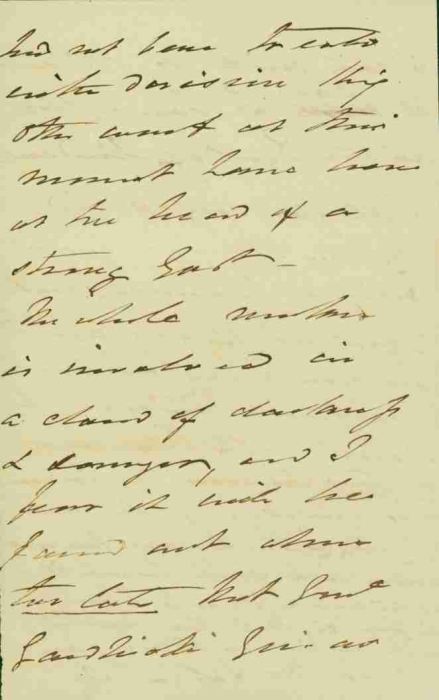 had not been treated
with derision they
would at this
moment have been
at the head of a
strong Govt -
The whole matter
is involved in
a cloud of darkness
& danger, and I
fear it will be
found out when
too late that Genl